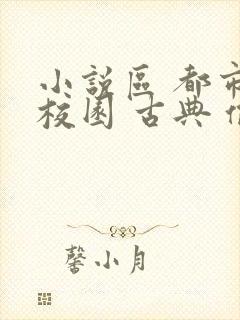 小說區 都市
校園 古典
馨小月